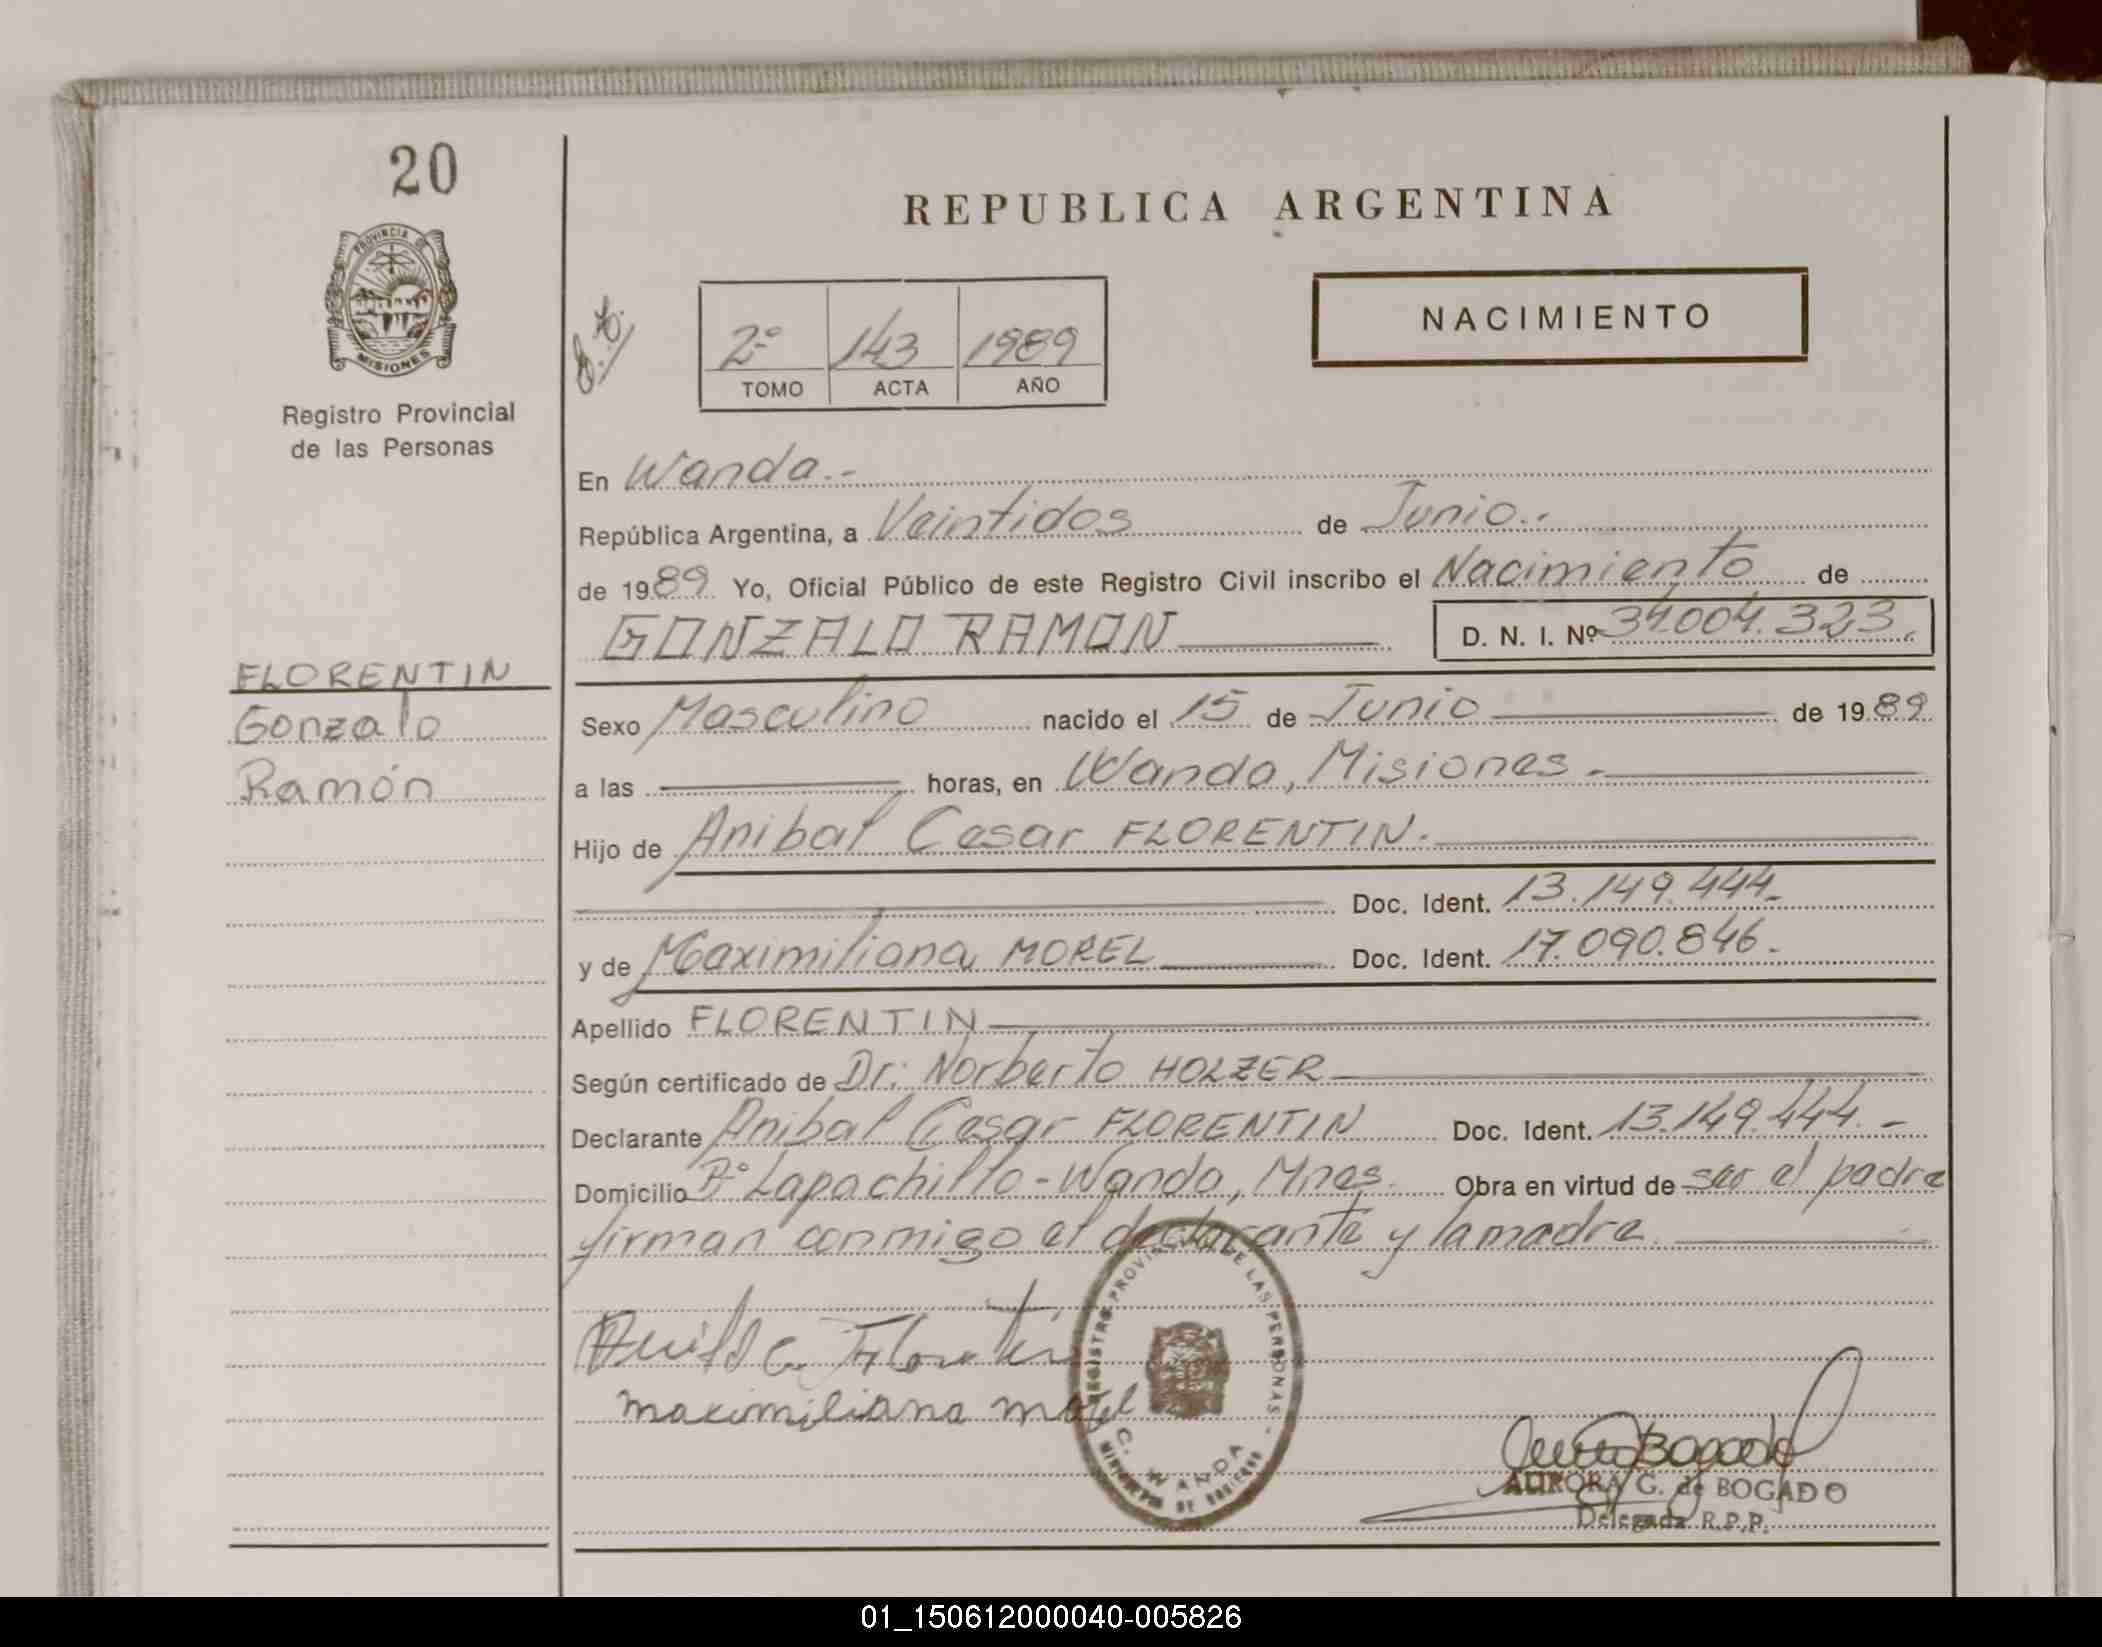 20
PROVINCIA DE
MISIONES
Registro Provincial
de las Personas
FLORENTIN
Gonzalo
Ramón
REPUBLICA ARGENTINA
2º 143 1989
TOMO ACTA AÑO
NACIMIENTO
En Wanda.-
República Argentina, a Veintidos de Junio.-
de 1989 Yo, Oficial Público de este Registro Civil inscribo el Nacimiento de
GONZALO RAMON D. N. I. Nº 34.004.323.
Sexo Masculino nacido el 15 de Junio de 1989
a las horas, en Wanda, Misiones.-
Hijo de Anibal Cesar FLORENTIN.
Doc. Ident. 13.149.444.-
y de Maximiliana MOREL Doc. Ident. 17.090.846.-
Apellido FLORENTIN
Según certificado de Dr. Norberto HOLZER
Declarante Anibal Cesar FLORENTIN Doc. Ident. 13.149.444.-
Domicilio Bº Lapachillo-Wanda, Mnes. Obra en virtud de ser el padre
firman conmigo el declarante y la madre.
maximiliana morel
REGISTRO PROVINCIAL DE LAS PERSONAS
WANDA
MINISTERIO DE GOBIERNO
AURORA G. de BOGADO
Delegada R.P.P.
01_150612000040-005826